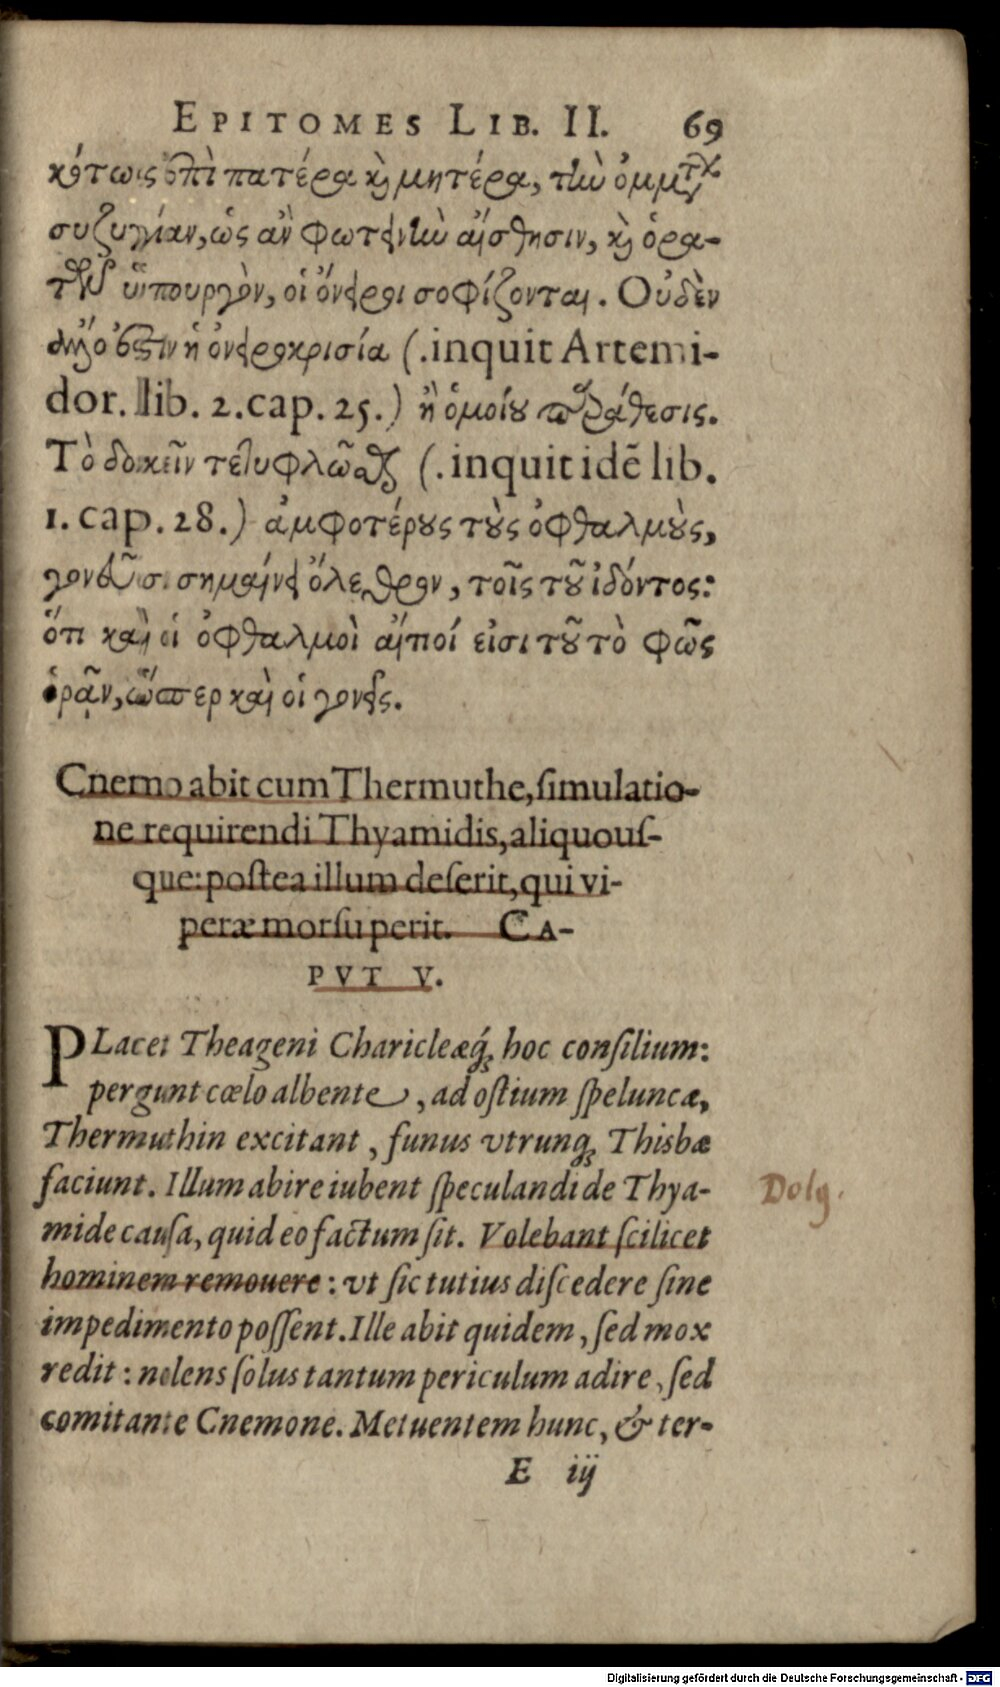 EPITOMES LIB. II. 69
πατέρα καὶ μητέρα, τὴν ὀμμάτων
συζυγίαν, ὡς ἂν φωτεινὴν αἴσθησιν, καὶ ὁρα-
τῶν ὑπουργὸν, οἱ ὄνειροι σοφίζονται. Οὐδὲν
ἄλλο ἐστὶν ἡ ὀνειροκρισία (.inquit Artemi-
dor. lib. 2. cap. 25.) ἢ ὁμοίου παράθεσις.
Τὸ δοκεῖν τετυφλῶσθαι (.inquit idẽ lib.
1. cap. 28.) ἀμφοτέρους τοὺς ὀφθαλμοὺς,
γονεῦσι σημαίνει ὄλεθρον, τοῖς τοῦ ἰδόντος:
ὅτι καὶ οἱ ὀφθαλμοὶ αἴτιοί εἰσι τοῦ τὸ φῶς
ὁρᾷν, ὥσπερ καὶ οἱ γονεῖς.
Cnemo abit cum Thermuthe, ſimulatio-
ne requirendi Thyamidis, aliquouſ-
que: poſtea illum deſerit, qui vi-
peræ morſu perit. CA-
PVT V.
PLacet Theageni Charicleæq́; hoc conſilium:
pergunt cœlo albente, ad oſtium ſpeluncæ,
Thermuthin excitant, funus vtrunq; Thisbæ
faciunt. Illum abire iubent ſpeculandi de Thya-
mide cauſa, quid eo factum ſit. Volebant ſcilicet
hominem remouere: vt ſic tutius diſcedere ſine
impedimento poſſent. Ille abit quidem, ſed mox
redit: nolens ſolus tantum periculum adire, ſed
comitante Cnemone. Metuentem hunc, & ter-
Dolg.
E iij
Digitalisierung gefördert durch die Deutsche Forschungsgemeinschaft - DFG